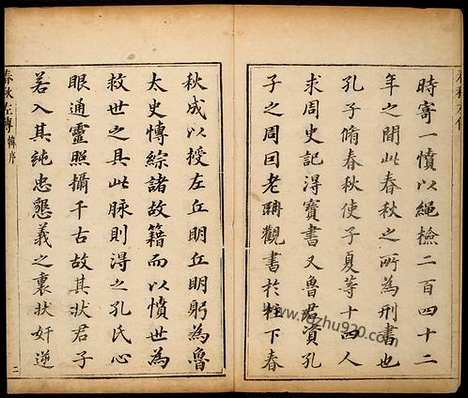 時寄一憤以繩檢二百四十二
年之間此春秋之所為刑書也
孔子脩春秋使子夏等十四人
求周史記得寶書又魯君資孔
子之周囙老聃觀書於柱下春
秋成以授左丘明丘明躬為魯
太史慱綜諸故籍而以憤世為
救世之具此脉則得之孔氏心
眼通靈照攝千古故其狀君子
若入其純忠懇義之裏狀奸逆
春秋左傳 韓序 二